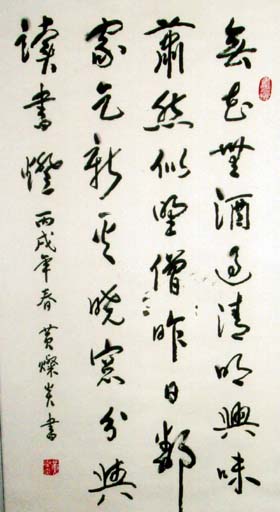 無花無酒過清明興味
蕭然似野僧昨日鄰
家乞新火曉窗分與
讀書燈 丙戌年春 黄燦炎書